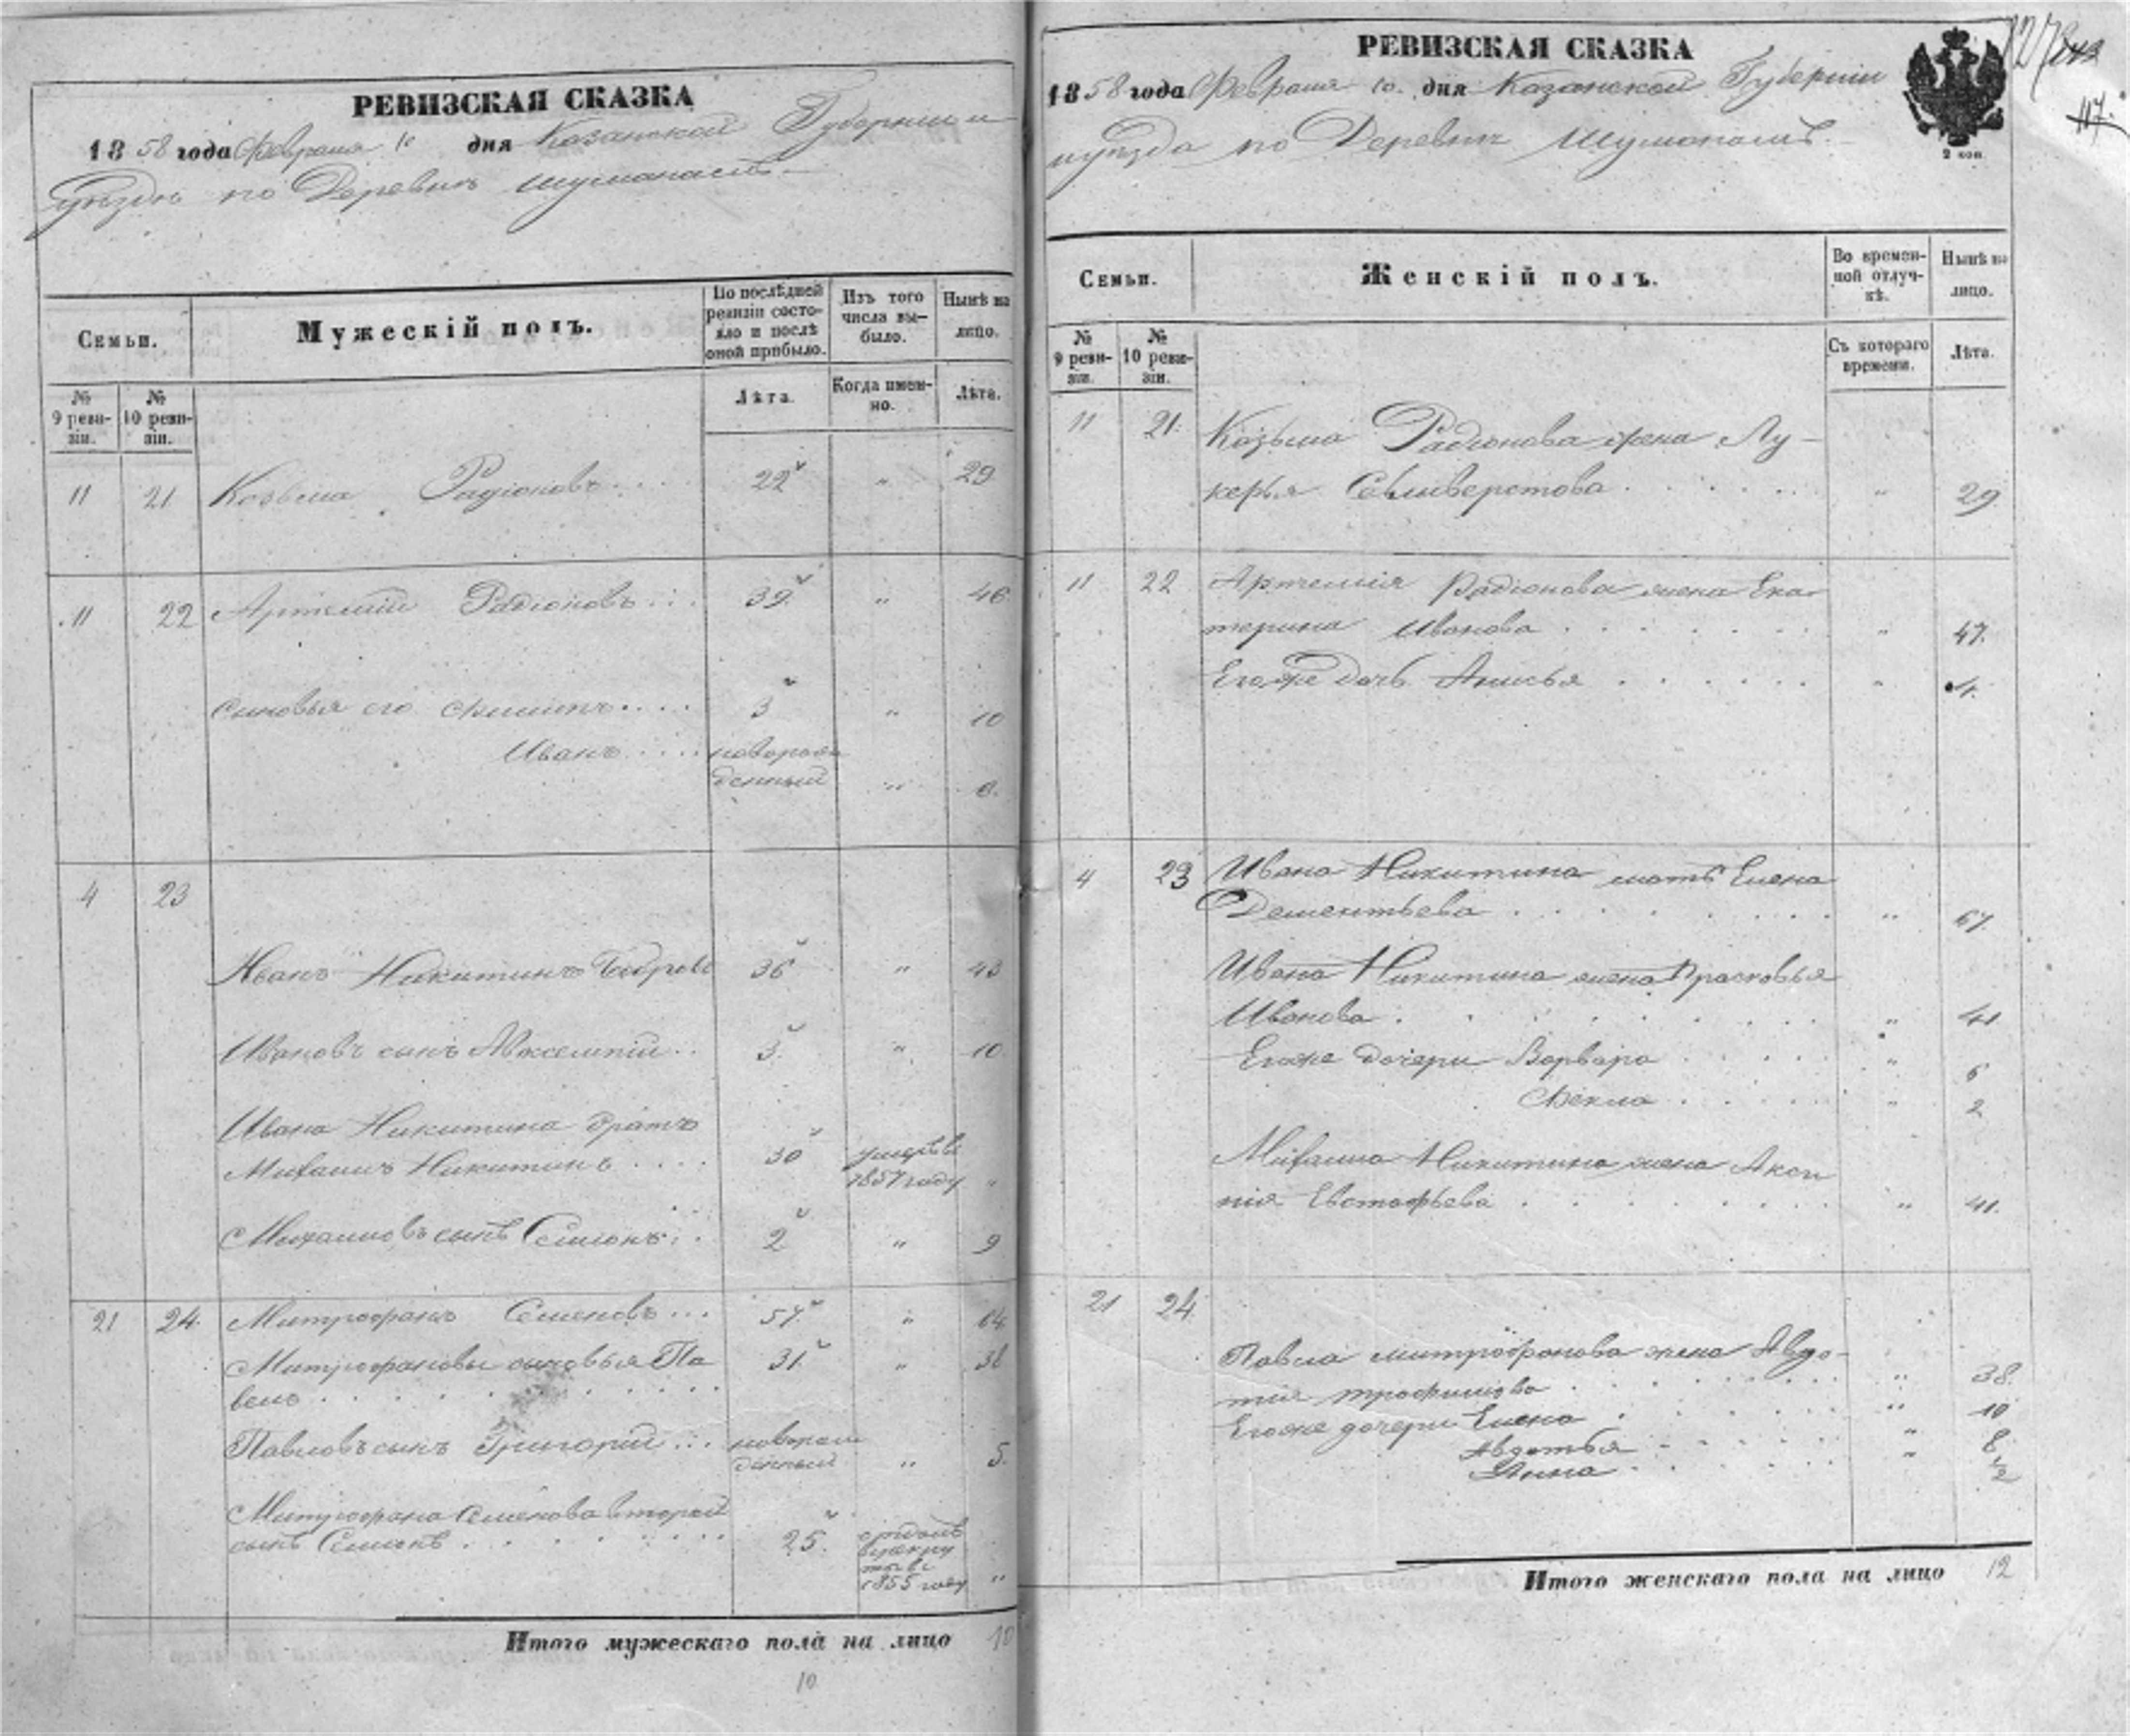 РЕВИЗСКАЯ СКАЗКА
1858 года Февраля 10 дня Казанской Губернии и
уѣзда по Деревнѣ
Семьи.
Мужескій полъ.
По послѣдней ревизіи состояло и послѣ оной прибыло.
Изъ того числа выбыло.
Нынѣ на лицо.
№ 9 ревизіи.
№ 10 ревизіи.
Лѣта.
Когда именно.
Лѣта.
11 21 Козьма Радіоновъ 22 " 29
11 22 Артемій Радіоновъ 39 " 46
Сыновья его 3 " 10
Иванъ новорож
денный " 6.
4 23
Иванъ Никитинъ 36 " 43
Ивановъ сынъ 3. " 10
Ивана Никитина братъ
Михаилъ Никитинъ 30 умеръ въ 1857 году "
Михаиловъ сынъ Семионъ 2 " 9
21 24. Митрофанъ Семеновъ 57. " 64
Митрофановы сыновья Па
велъ 31. " 38
Павловъ сынъ Григорій новорож
денный " 5.
Митрофана Семенова второй
сынъ Семионъ 25. отданъ
въ рекру
ты въ
1855 году "
Итого мужескаго пола на лицо 10
10
РЕВИЗСКАЯ СКАЗКА
1858 года Февраля 10. дня Казанской Губерніи
и уѣзда по Деревнѣ
2 коп.
117.
Семьи.
Женскій полъ.
Во временной отлучкѣ.
Нынѣ на лицо.
№ 9 ревизіи.
№ 10 ревизіи.
Съ котораго времени.
Лѣта.
11 21. Козьма Радіонова жена Лу-
керья Селиверстова " 29.
11 22 Артемія Радіонова жена Ека
терина Иванова " 47.
Егоже дочь Анисья "
4 23 Ивана Никитина мать Елена
Дементьева " 67.
Ивана Никитина жена Прасковья
Иванова " 41
Егоже дочери Варвара " 6
Ѳекла " 2
Михаила Никитина жена Аксе
нія Евстафьева " 41.
21 24.
Павла Митрофанова жена Авдо-
тія Трофимова " 38.
Егоже дочери Елена " 10
Авдотья " 8.
Анна " ½
Итого женскаго пола на лицо 12